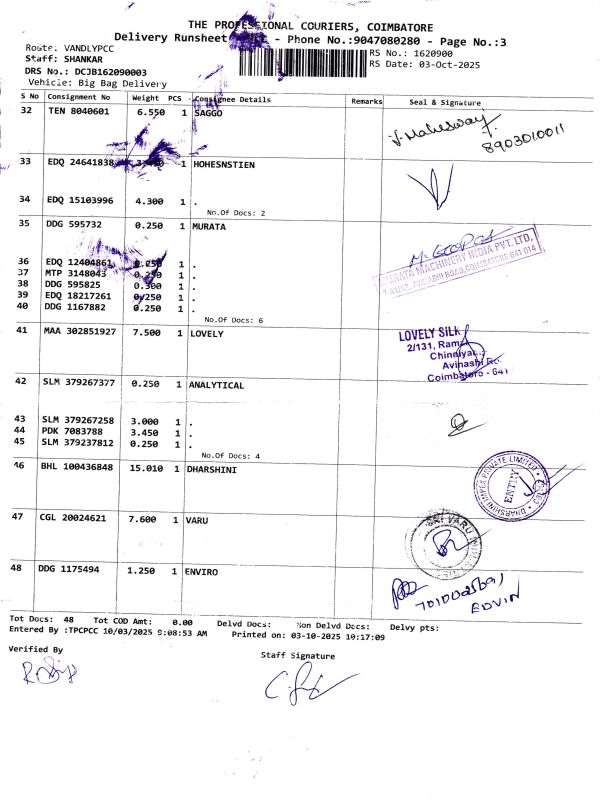 THE PROFESSIONAL COURIERS, COIMBATORE
Delivery Runsheet - Phone No.:9047080280 - Page No.:3
Route: VANDLYPCC
RS No.: 1620900
Staff: SHANKAR
RS Date: 03-Oct-2025
DRS No.: DCJB162090003
Vehicle: Big Bag Delivery
S No Consignment No Weight PCS Consignee Details Remarks Seal & Signature
32 TEN 8040601 6.550 1 SAGGO
J. Maheswary
8903010011
33 EDQ 24641838 1 HOHESNSTIEN
34 EDQ 15103996 4.300 1 .
No.Of Docs: 2
35 DDG 595732 0.250 1 MURATA
MURATA MACHINERY INDIA PVT. LTD.,
AVINASHI ROAD, COIMBATORE-641 014
36 EDQ 12404861 0.250 1 .
37 MTP 3148043 0.250 1 .
38 DDG 595825 0.300 1 .
39 EDQ 18217261 0.250 1 .
40 DDG 1167882 0.250 1 .
No.Of Docs: 6
41 MAA 302851927 7.500 1 LOVELY
LOVELY SILK
2/131, Rama
Chinniya
Avinashi
Coimbatore - 641
42 SLM 379267377 0.250 1 ANALYTICAL
43 SLM 379267258 3.000 1 .
44 PDK 7083788 3.450 1 .
45 SLM 379237812 0.250 1 .
No.Of Docs: 4
46 BHL 100436848 15.010 1 DHARSHINI
DHARSHINI IMPEX PRIVATE LIMITED
ENTRY
47 CGL 20024621 7.600 1 VARU
SRI VARU
48 DDG 1175494 1.250 1 ENVIRO
EDVIN
Tot Docs: 48 Tot COD Amt: 0.00 Delvd Docs: Non Delvd Docs: Delvy pts:
Entered By :TPCPCC 10/03/2025 9:08:53 AM Printed on: 03-10-2025 10:17:09
Verified By
Staff Signature